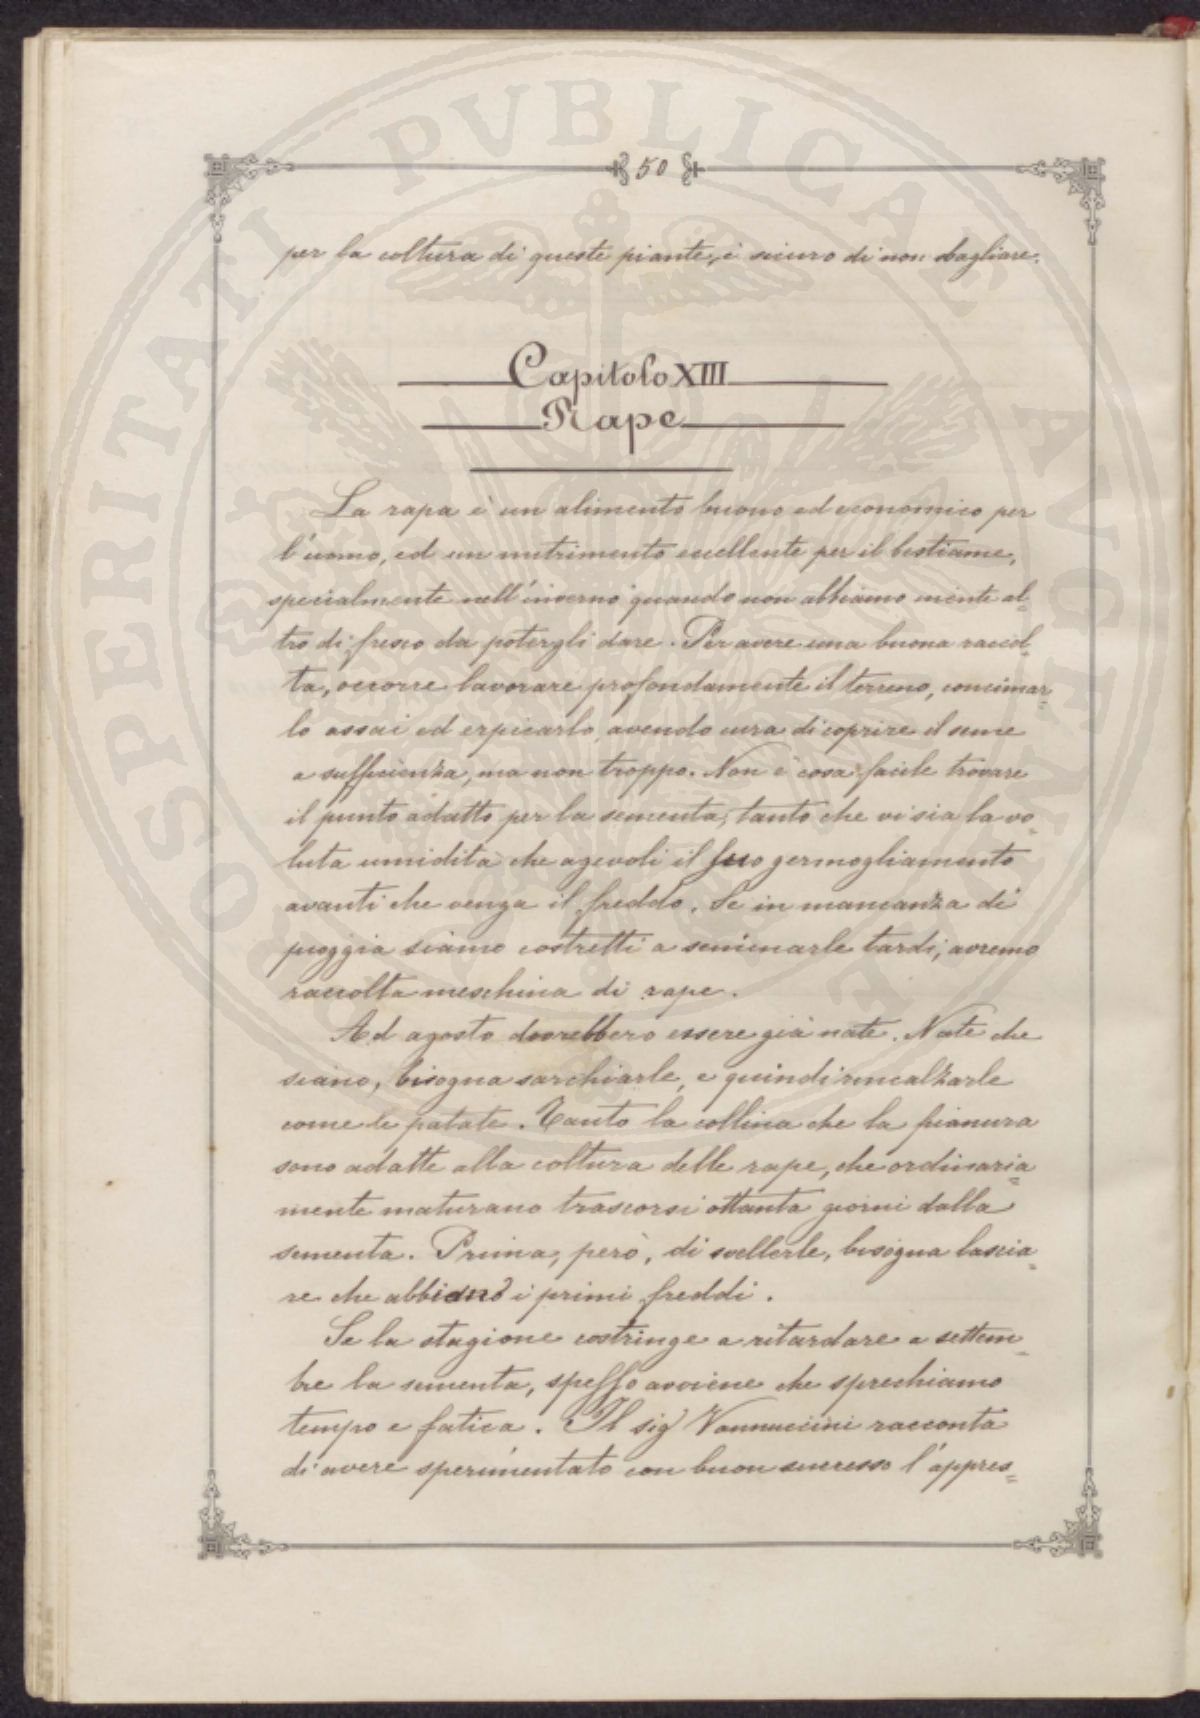 50
per la coltura di queste piante, è sicuro di non sbagliare.
Capitolo XIII
Rape
La rapa è un alimento buono ed economico per
l'uomo, ed un nutrimento eccellente per il bestiame,
specialmente nell'inverno quando non abbiamo niente al=
tro di fresco da potergli dare. Per avere una buona raccol=
ta, occorre lavorare profondamente il terreno, concimar=
lo assai ed erpicarlo, avendo cura di coprire il seme
a sufficienza, ma non troppo. Non è cosa facile trovare
il punto adatto per la sementa, tanto che vi sia la vo=
luta umidità che agevoli il suo germogliamento
avanti che venga il freddo. Se in mancanza di
pioggia siamo costretti a seminarle tardi, avremo
raccolta meschina di rape.
Ad agosto dovrebbero essere già nate. Nate che
siano, bisogna sarchiarle, e quindi rincalzarle
come le patate. Tanto la collina che la pianura
sono adatte alla coltura delle rape, che ordinaria=
mente maturano trascorsi ottanta giorni dalla
sementa. Prima, però, di svellerle, bisogna lascia=
re che abbiano i primi freddi.
Se la stagione costringe a ritardare a settem=
bre la sementa, spesso avviene che sprechiamo
tempo e fatica. Il sig Vannuccini racconta
di avere sperimentato con buon successo l'appres=
SPERITATI PVBLICAE